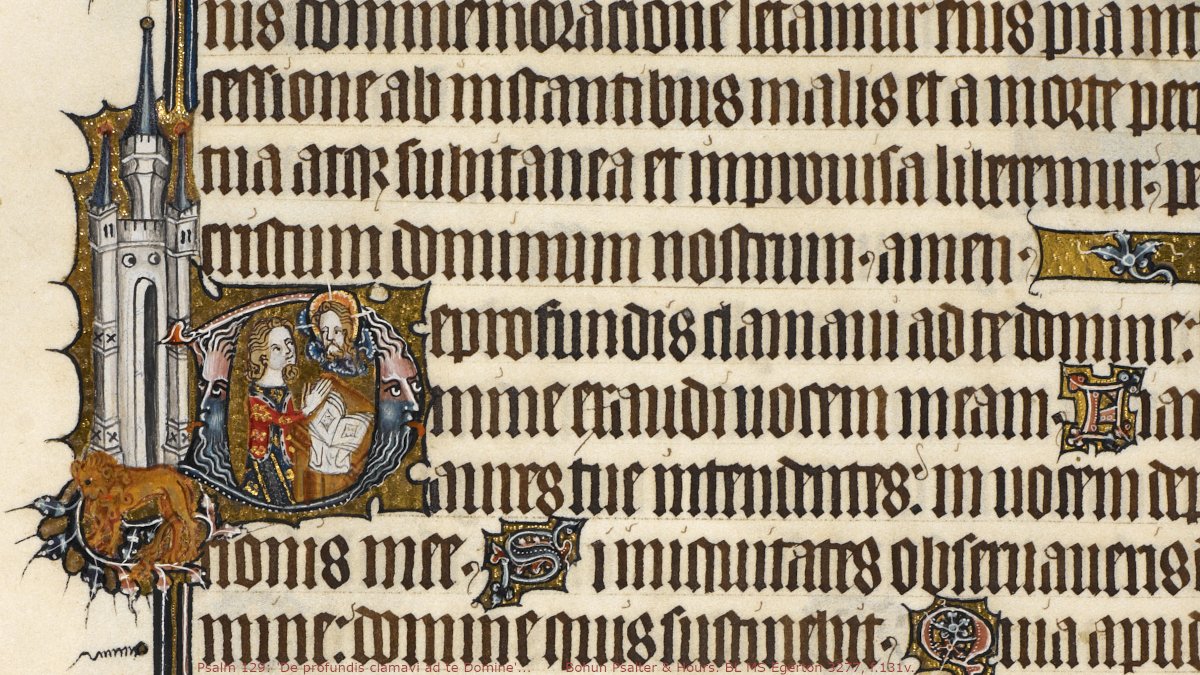 nis commemoratione letamur eius pia inter
cessione ab instantibus malis et a morte perpe
tua atq subitanea et improuisa liberemur. per
cristum dominum nostrum. amen.
De profundis clamaui ad te domine:
mine exaudi uocem meam
aures tue intendentes: in uocem
tionis mee. Si iniquitates obseruaueris
mine: domine quis sustinebit. Quia apud
Psalm 129: 'De profundis clamavi ad te Domine'... Bohun Psalter & Hours. BL MS Egerton 3277, f.131v.